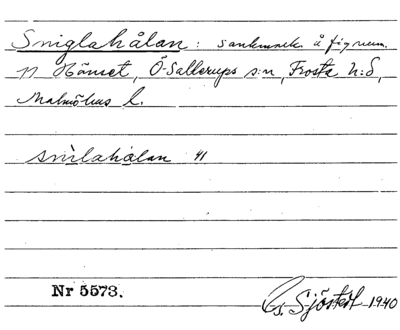 Sniglahålan: sankmark å fig. num.
11 Hänset, Ö. Sallerups s:n, Frosta h:d,
Malmöhus l.
snìlahålan 41
Nr 5573.
Gs. Sjöstedt 1940